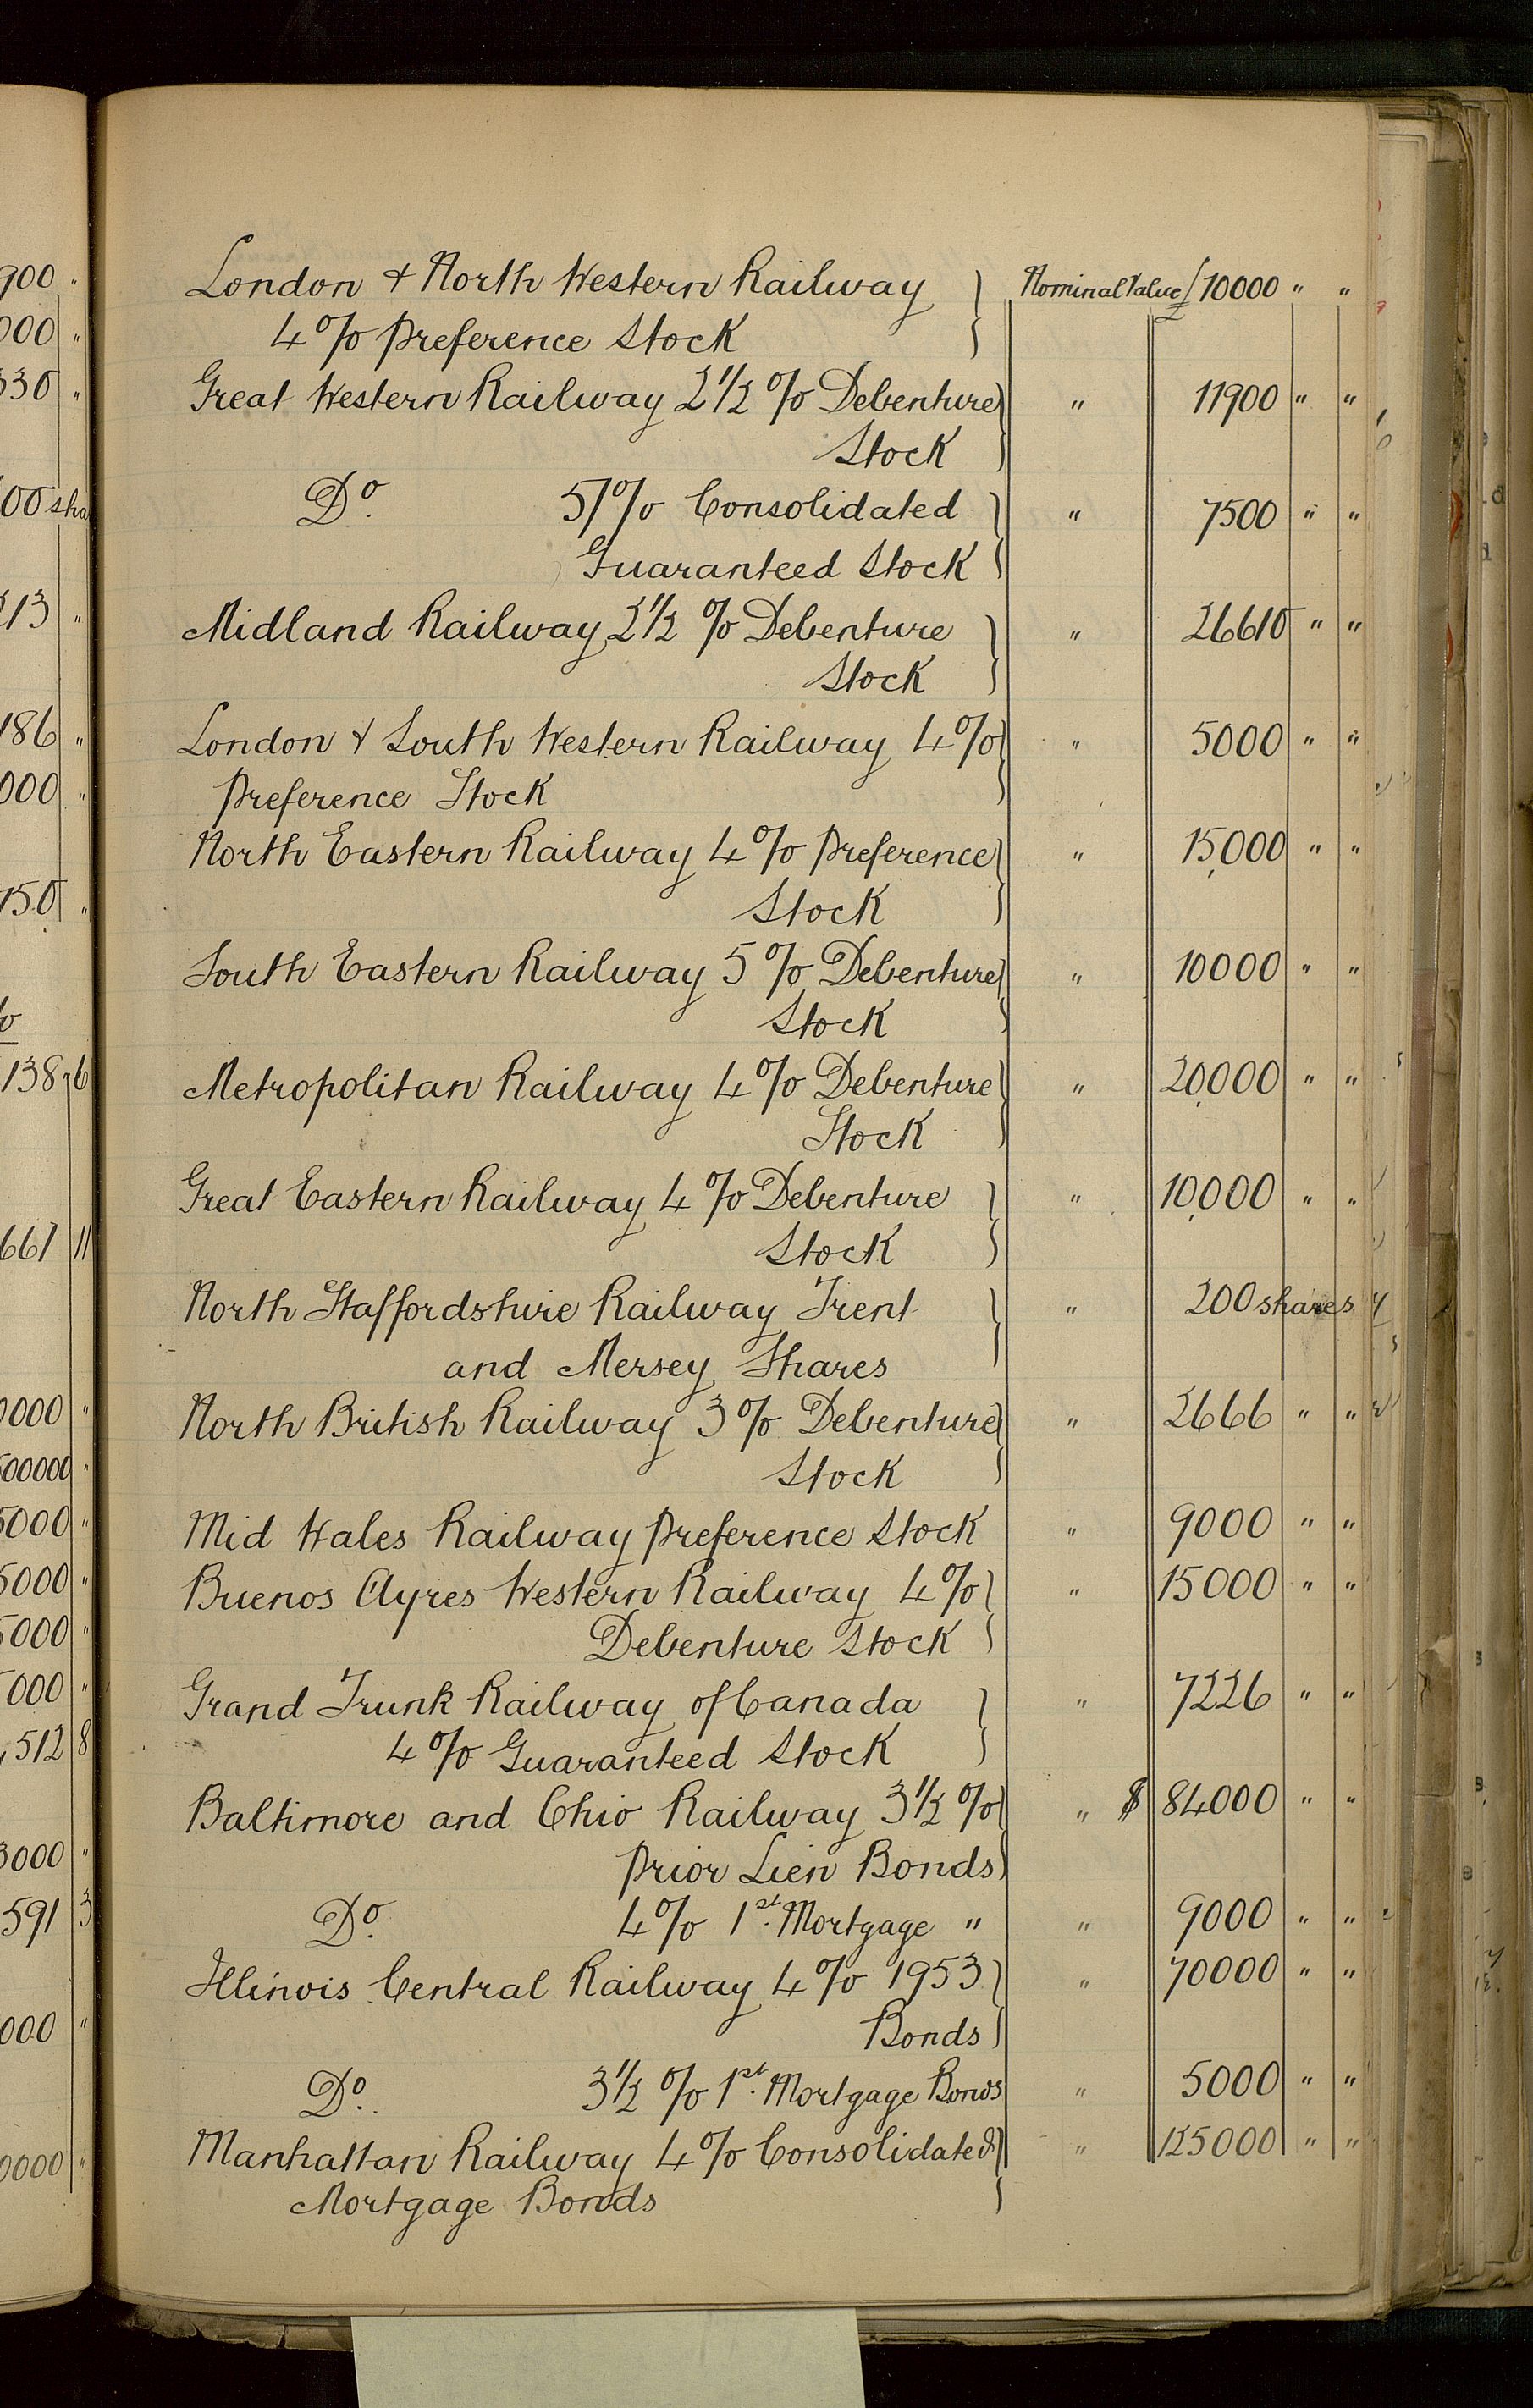 London & North Western Railway } Nominal Value £ 10000 " "
4% Preference Stock
Great Western Railway 2½% Debenture } " 11900 " "
Stock
Do. 5% Consolidated } " 7500 " "
Guaranteed Stock
Midland Railway 2½% Debenture } " 26610 " "
Stock
London & South Western Railway 4% } " 5000 " "
Preference Stock
North Eastern Railway 4% Preference } " 15,000 " "
Stock
South Eastern Railway 5% Debenture } " 10000 " "
Stock
Metropolitan Railway 4% Debenture } " 20,000 " "
Stock
Great Eastern Railway 4% Debenture } " 10,000 " "
Stock
North Staffordshire Railway Trent } " 200 shares
and Mersey Shares
North British Railway 3% Debenture } " 2666 " "
Stock
Mid Wales Railway Preference Stock " 9000 " "
Buenos Ayres Western Railway 4% } " 15000 " "
Debenture Stock
Grand Trunk Railway of Canada } " 7226 " "
4% Guaranteed Stock
Baltimore and Ohio Railway 3½% } " $ 84000 " "
Prior Lien Bonds
Do. 4% 1st. Mortgage " " 9000 " "
Illinois Central Railway 4% 1953 } " 70000 " "
Bonds
Do. 3½% 1st. Mortgage Bonds " 5000 " "
Manhattan Railway 4% Consolidated } " 125000 " "
Mortgage Bonds